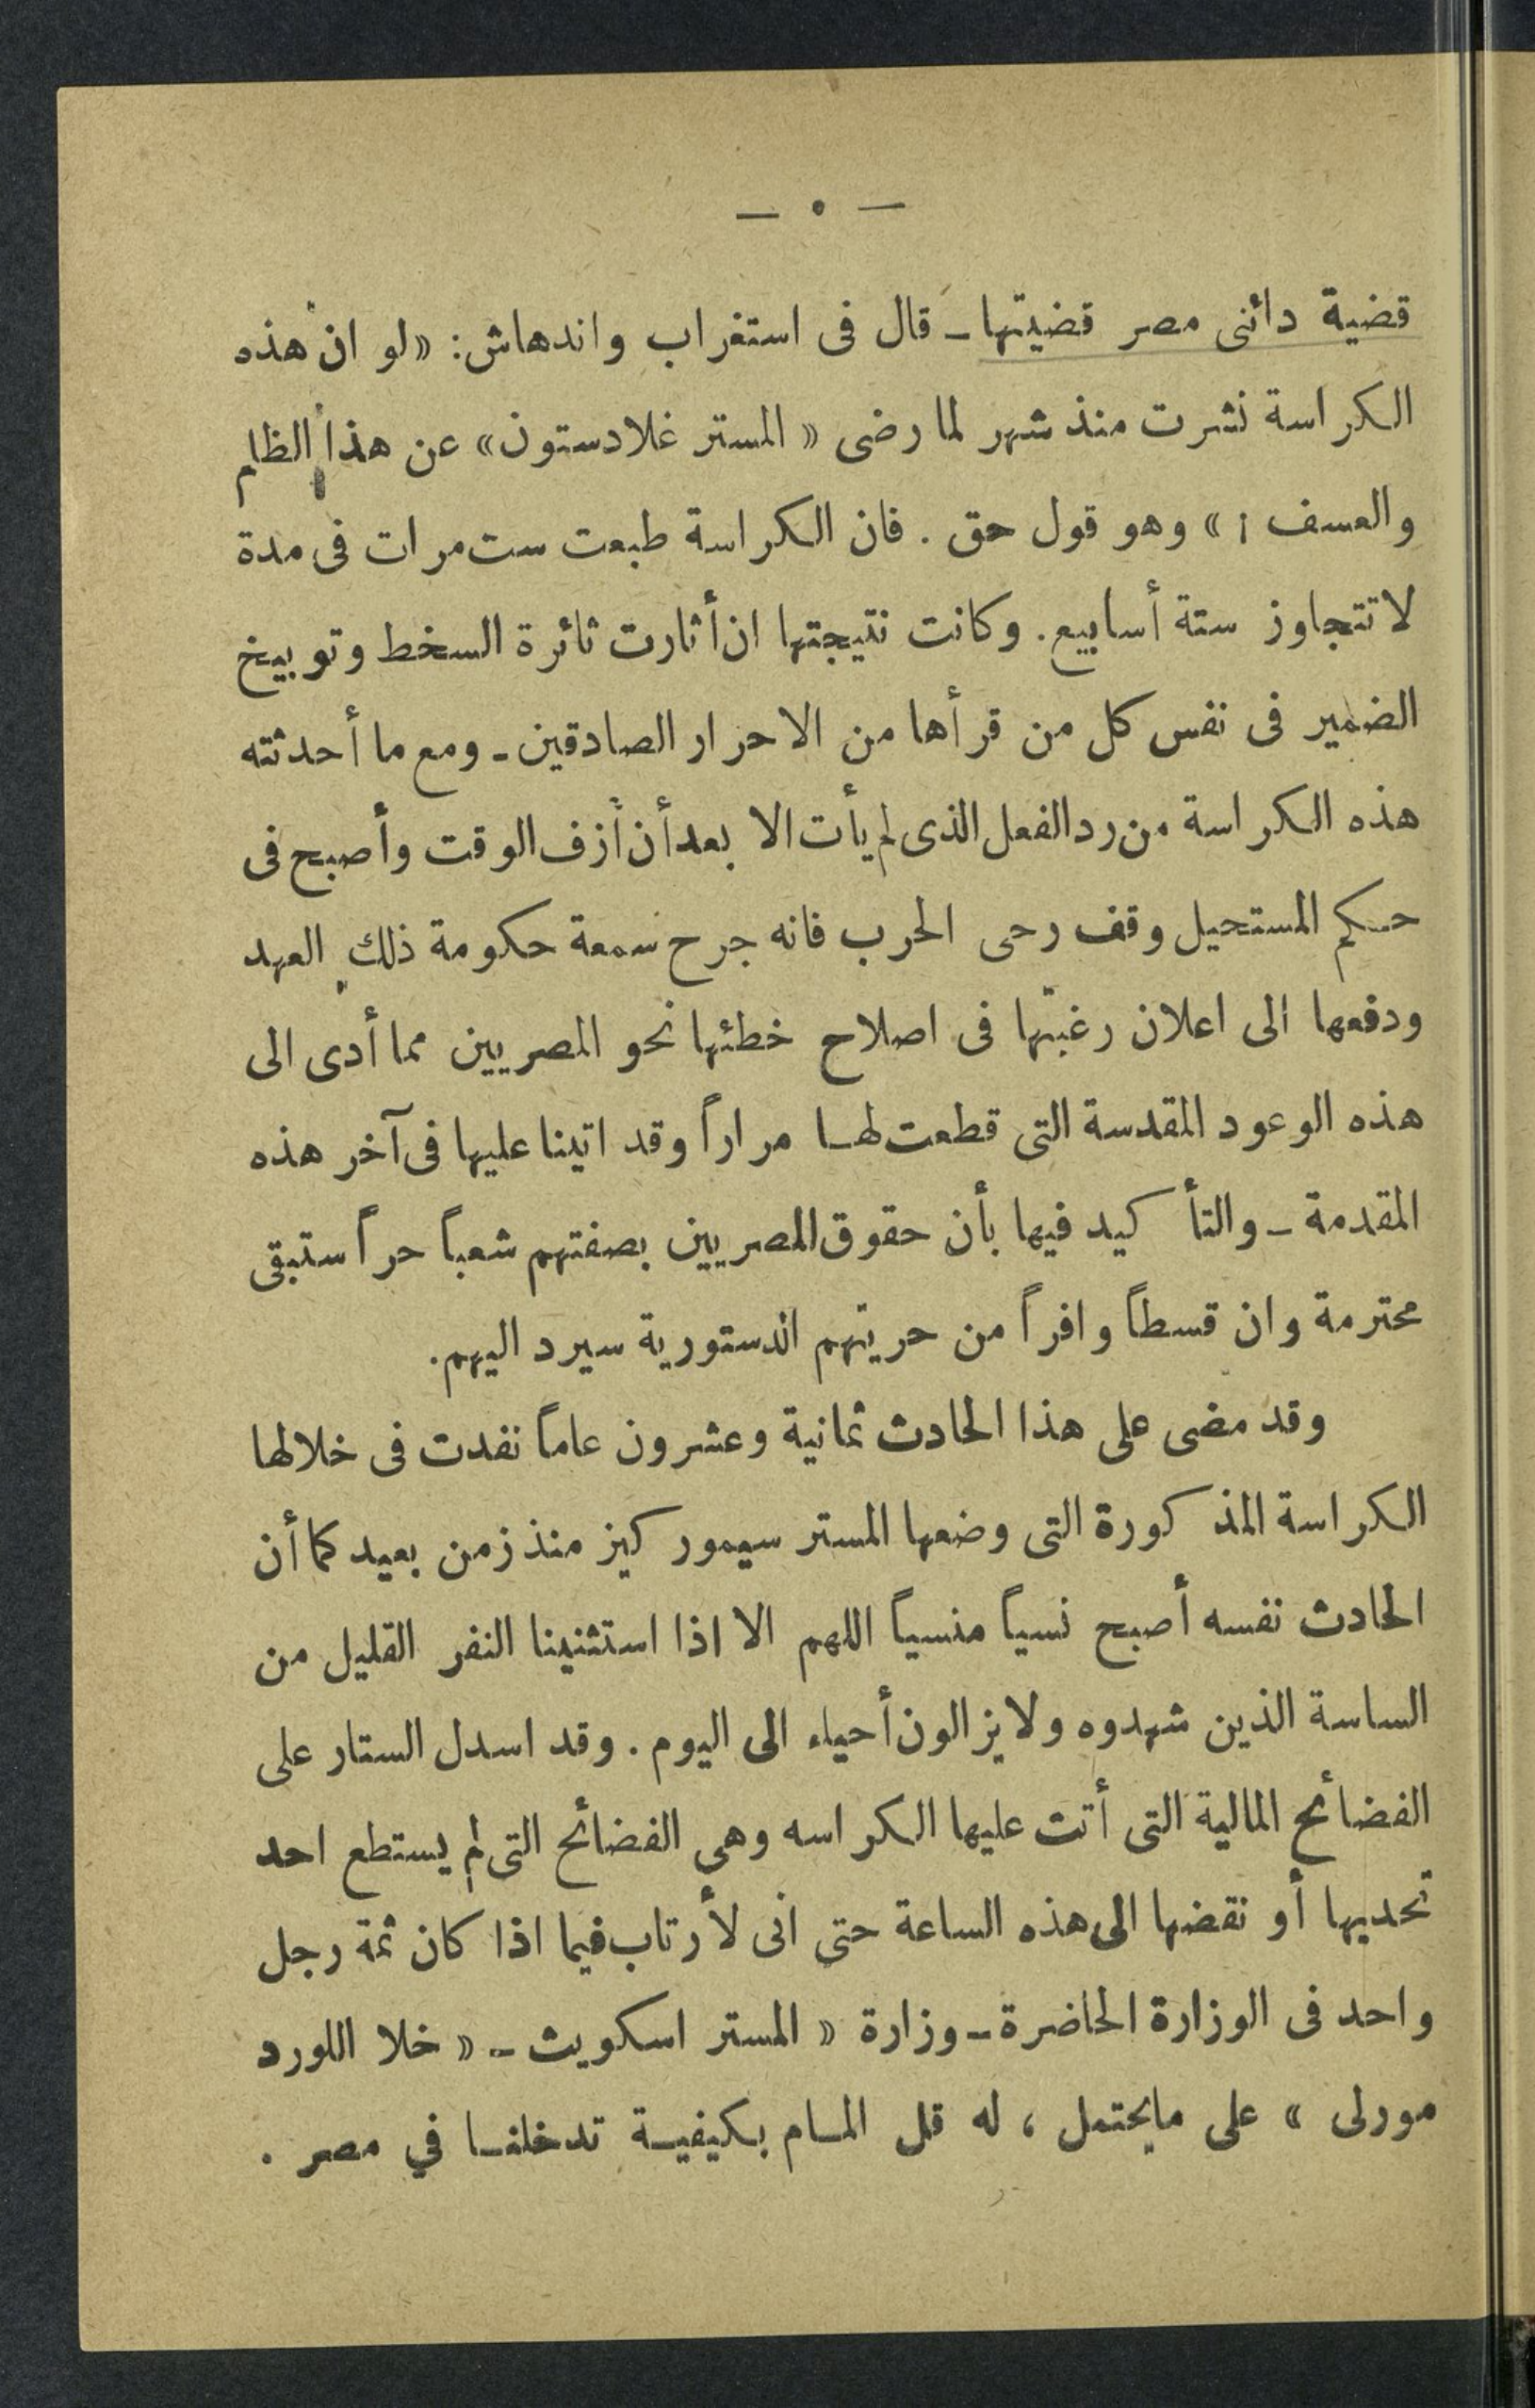 — ٥ —
قضية دائنى مصر قضيتها - قال فى استغراب واندهاش: «لو ان هذه
الكراسة نشرت منذ شهر لما رضى « المستر غلادستون» عن هذا الظلم
والعسف ! » وهو قول حق . فان الكراسة طبعت ست مرات فى مدة
لا تتجاوز ستة أسابيع. وكانت نتيجتها ان أثارت ثائرة السخط وتوبيخ
الضمير فى نفس كل من قرأها من الاحرار الصادقين - ومع ما أحدثته
هذه الكراسة من رد الفعل الذى لم يأت الا بعد أن أزف الوقت وأصبح فى
حكم المستحيل وقف رحى الحرب فانه جرح سمعة حكومة ذلك العهد
ودفعها الى اعلان رغبتها فى اصلاح خطئها نحو المصريين مما أدى الى
هذه الوعود المقدسة التى قطعت لها مراراً وقد اتينا عليها فى آخر هذه
المقدمة - والتأكيد فيها بأن حقوق المصريين بصفتهم شعباً حراً ستبقى
محترمة وان قسطاً وافراً من حريتهم الدستورية سيرد اليهم.
وقد مضى على هذا الحادث ثمانية وعشرون عاماً نفدت فى خلالها
الكراسة المذكورة التى وضعها المستر سيمور كيز منذ زمن بعيد كما أن
الحادث نفسه أصبح نسياً منسياً اللهم الا اذا استثنينا النفر القليل من
الساسة الذين شهدوه ولا يزالون أحياء الى اليوم . وقد اسدل الستار على
الفضائح المالية التى أتت عليها الكراسه وهي الفضائح التى لم يستطع احد
تحديها أو نقضها الى هذه الساعة حتى انى لأرتاب فيما اذا كان ثمة رجل
واحد فى الوزارة الحاضرة - وزارة « المستر اسكويث - « خلا اللورد
مورلى » على ما يحتمل ، له قل المام بكيفية تدخلنا في مصر .